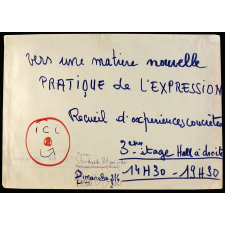 vers une matière nouvelle
PRATIQUE de L'EXPRESSION
Recueil d'expériences concrètes
ICI
3ème étage Hall à droite
14H30 - 19H30
Dimanche 2/6